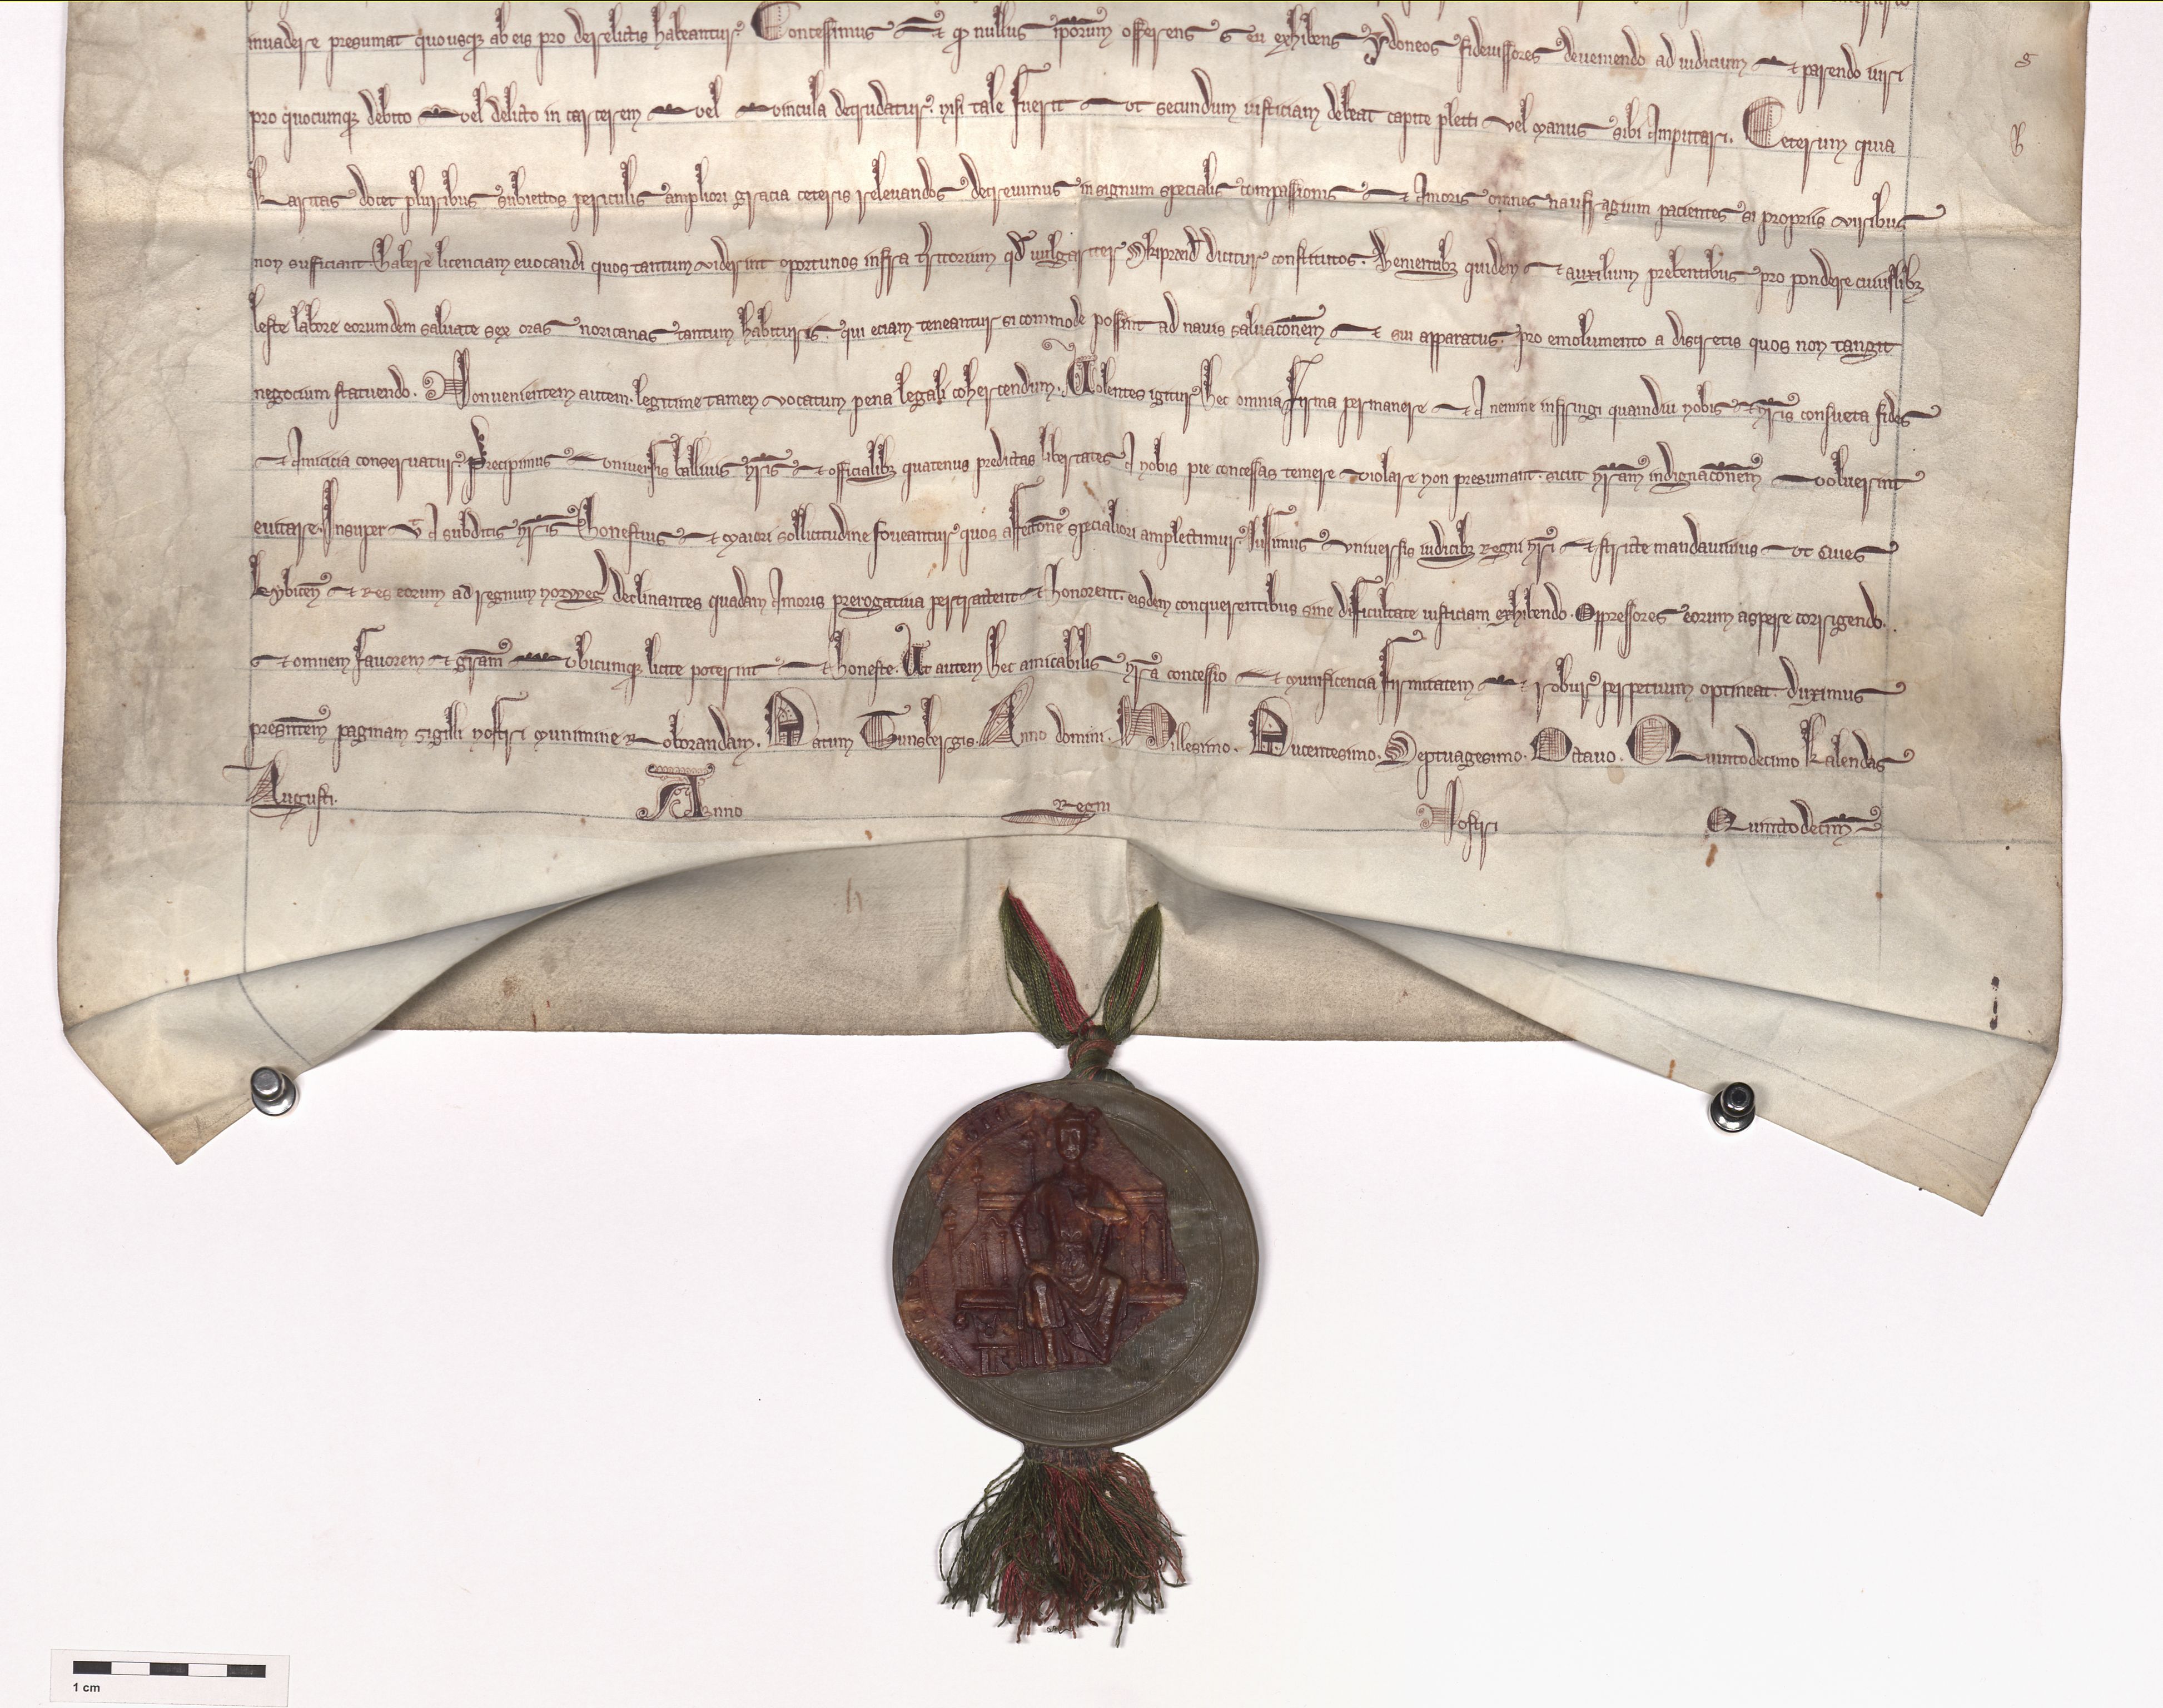 inuadere presumat quousq; ab eis pro derelictis habeantur. Concessimus et qđ nullus ip̄orum offerens seu exhibens ydoneos fideiussores de ueniendo ad iudicium et parendo iuri
pro quocumq; debito vel delicto in carcerem vel vincula detrudatur. nisi tale fuerit vt secundum iusticiam debeat capite plecti vel manus sibi amputari. Ceterum quia
karitas docet pluribus subiectos periculis ampliori gracia ceteris releuandos decreuimus in signum specialis compassionis et amoris omnes naufragium pacientes si propriis viribus
non sufficiant habere licenciam euocandi quos tantum viderint oportunos infra t̄ritorium qđ wlgariter dicitur constitutos. Venientib; quidem et auxilium prebentibus pro pondere cuiuslib;
leste labore eorumdem saluate sex oras noricanas tantum habituris. qui eciam teneantur si commode possint ad nauis saluac̄onem et sui apparatus. pro emolumento a discretis quos non tangit
negocium statuendo. Non uenientem autem. legitime tamen vocatum pena legali cohercendum. Volentes igitur hec omnia firma permanere et a nemine infringi quamdiu nobis et nr̄is consueta fides
et amicicia conseruatur. Precipimus vniuersis balliuis nr̄is et officialib; quatenus predictas libertates a nobis pie concessas temere violare non presumant. sicut nr̄am indignac̄onem voluerint
euitare. Insuper vt a subditis nr̄is honestius et maiori sollicitudine foueantur quos affecc̄one speciali̇ori amplectimur. Iussimus vniuersis iudicib; regni nr̄i et stricte mandauimus vt ciues
Lybicen̄ et res eorum ad regnum norweḡ declinantes quadam amoris prerogatiua pertractent et honorent. eisdem conquerentibus sine difficultate iusticiam exhibendo. Oppressores eorum aspere corrigendo.
et omnem fauorem et gr̄am vbicumq; licite poterint et honeste. Ut autem hec amicabilis nr̄a concessio et munificencia firmitatem et robur perpetuum optineat. duximus
presentem paginam sigilli nostri munimine roborandam. Datum Tunsbergis. Anno domini. Millesimo. Ducentesimo. Septuagesimo. Octauo. Quintodecimo kalendas
Augusti. Anno Regni Nostri Quintodecim̄
1 cm